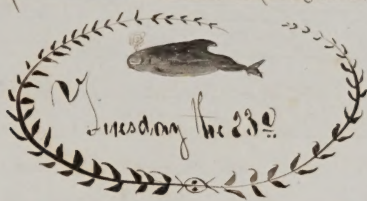 Tuesday the 23d